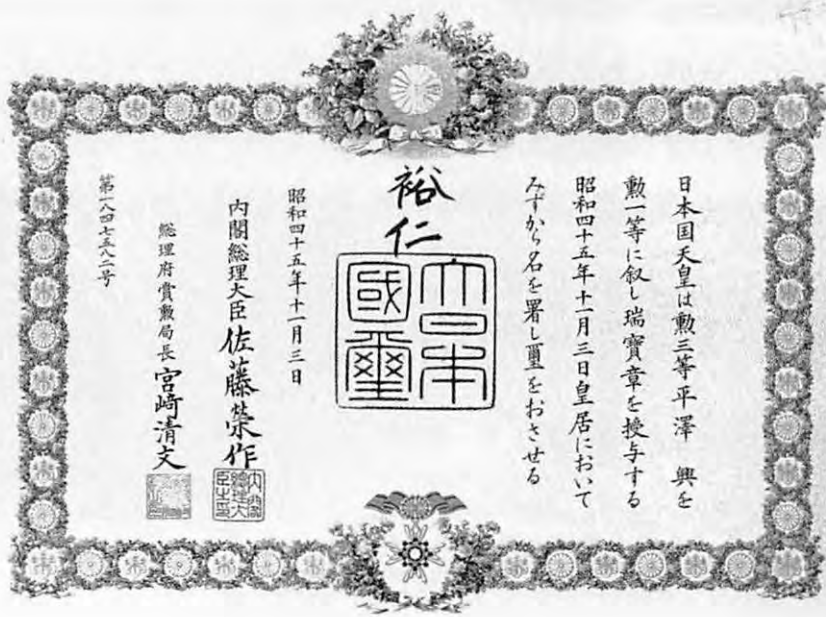 日本国天皇は勲三等平澤 興を
勲一等に叙し瑞寶章を授与する
昭和四十五年十一月三日皇居において
みずから名を署し璽をおさせる
裕仁
大日本
國璽
昭和四十五年十一月三日
内閣総理大臣 佐藤榮作
内閣
總理大
臣之印
総理府賞勲局長 宮崎清文
第一八四七五八二号